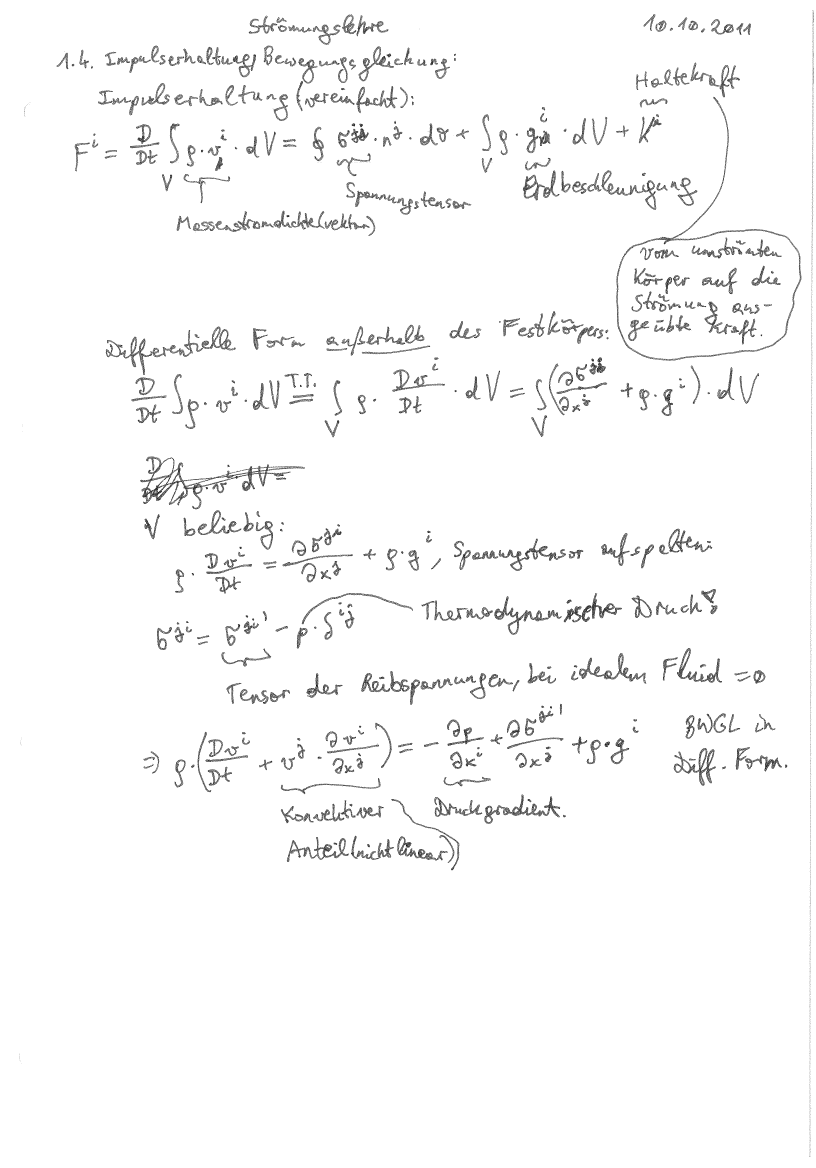 Strömungslehre 10.10.2011
1.4. Impulserhaltung, Bewegungsgleichung:
Impulserhaltung (vereinfacht):
Haltekraft
F^i = D/Dt ∫_V ρ·v^i·dV = ∮ σ^{ji}·n^j·dσ + ∫_V ρ·g^i·dV + K^i
Spannungstensor
Erdbeschleunigung
Massenstromdichte(vektor)
vom umströmten
Körper auf die
Strömung aus-
geübte Kraft.
Differentielle Form außerhalb des Festkörpers:
D/Dt ∫ρ·v^i·dV =^{T.T.} ∫_V ρ·Dv^i/Dt·dV = ∫_V (∂σ^{ji}/∂x^j + ρ·g^i)·dV
V beliebig:
ρ·Dv^i/Dt = ∂σ^{ji}/∂x^j + ρ·g^i, Spannungstensor aufspalten:
σ^{ji} = σ^{ji'} - p·δ^{ij} Thermodynamischer Druck!
Tensor der Reibspannungen, bei idealem Fluid = 0
⇒ ρ·(Dv^i/Dt + v^j·∂v^i/∂x^j) = -∂p/∂x^i + ∂σ^{ji'}/∂x^j + ρ·g^i BWGL in
Diff. Form.
Konvektiver Druckgradient.
Anteil (nicht linear)